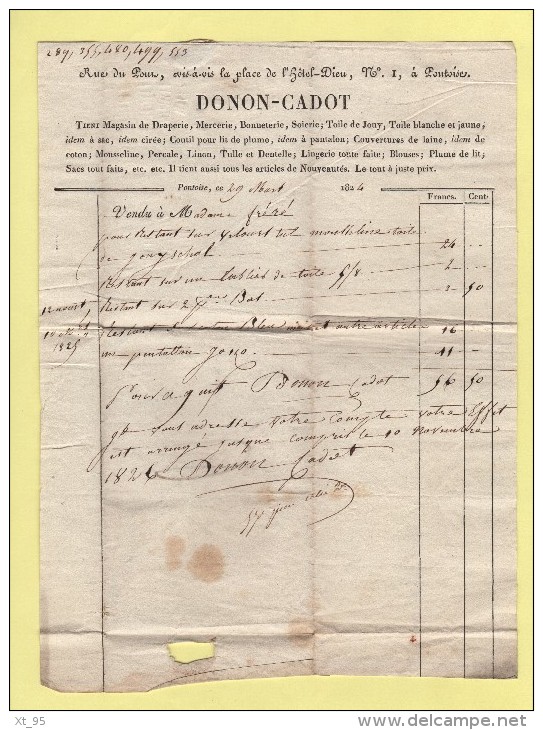 289, 355, 480, 499, 553
Rue du Pour, vis-à-vis la place de l'Hôtel-Dieu, N°. 1, à Pontoise.
DONON-CADOT
TIENT Magasin de Draperie, Mercerie, Bonneterie, Soierie; Toile de Jouy, Toile blanche et jaune;
idem à sac, idem cirée; Coutil pour lit de plume, idem à pantalon; Couvertures de laine, idem de
coton; Mousseline, Percale, Linon, Tulle et Dentelle; Lingerie toute faite; Blouses; Plume de lit;
Sacs tout faits, etc. etc. Il tient aussi tous les articles de Nouveautés. Le tout à juste prix.
Pontoise, ce 29 Mars 1824 Francs. Cent
Vendu à Madame fréré
pour Restant sur mousseline toile
de 24 --
Restant sur un tablier de toile 5/8 2 --
12 aout, Restant sur 2 Bas 2 50
Restant autre article 16
1825 un pantallon 11 --
Pour aquit Donon Cadot 56 50
votre Compte votre Effet
est arrangé jusque compris le 10 novembre
1824 Donon Cadot
Xt_95
©delcampe.net